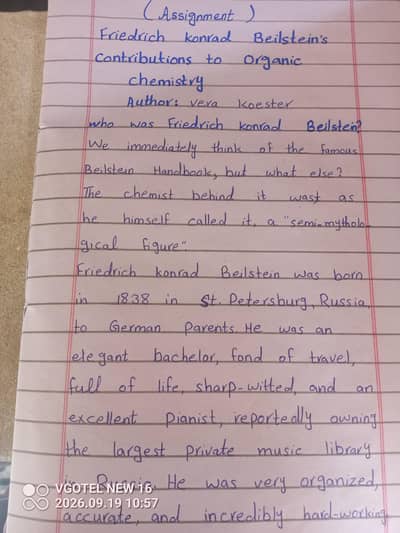 (Assignment)
Friedrich konrad Beilstein's
contributions to organic
chemistry
Author: vera koester
who was Friedrich konrad Beilstein?
We immediately think of the famous
Beilstein Handbook, but what else?
The chemist behind it wast as
he himself called it, a "semi-mytholo-
gical figure".
Friedrich konrad Beilstein was born
in 1838 in St. Petersburg, Russia,
to German Parents. He was an
elegant bachelor, fond of travel,
full of life, sharp-witted, and an
excellent pianist, reportedly owning
the largest private music library
in Russia. He was very organized,
accurate, and incredibly hard-working
VGOTEL NEW 16
2026.09.19 10:57